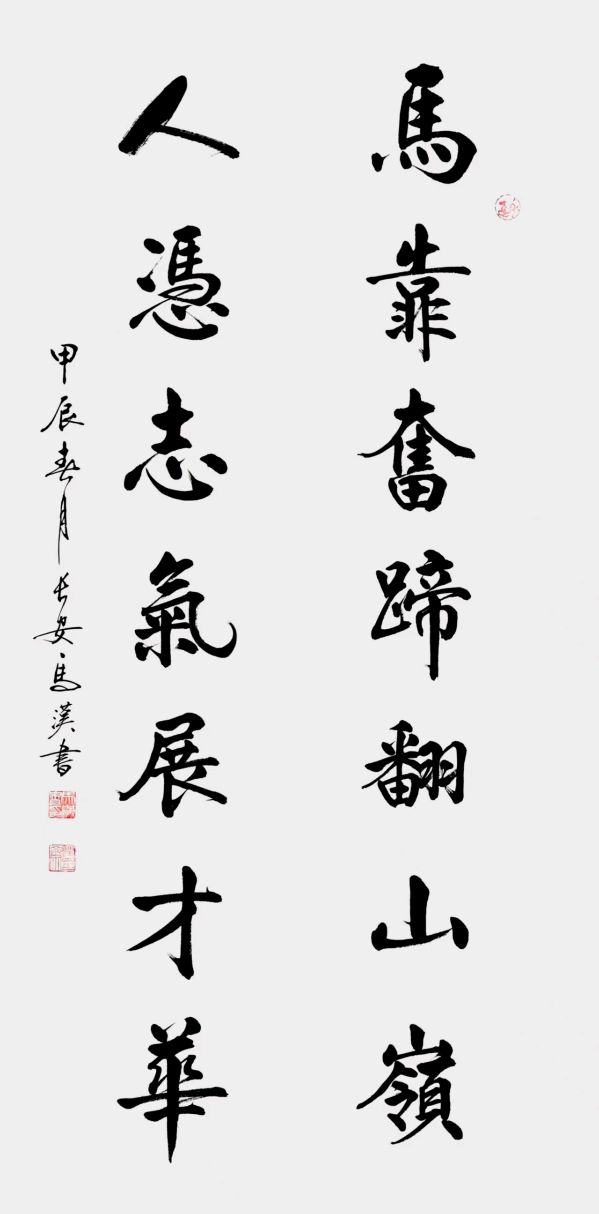 馬靠奮蹄翻山嶺
人憑志氣展才華
甲辰春月长安馬漢書